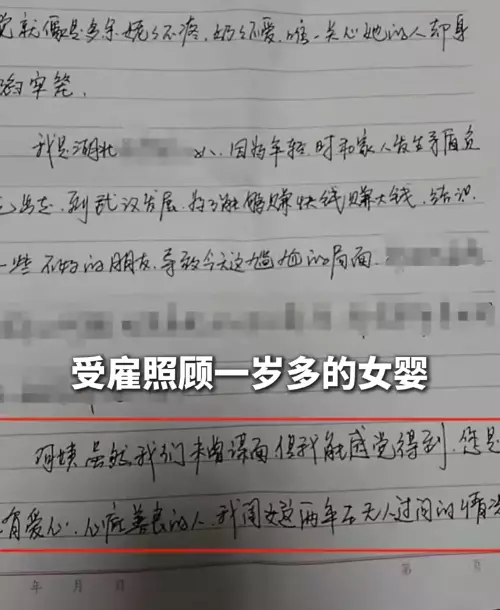 就像是多余姥姥不疼,奶奶不爱,唯一关心她的人却身
牢笼.
我是湖北 人,因为年轻时和家人发生矛盾负
出走,到武汉发展.为了能够赚快钱赚大钱,结识
一些不好的朋友,导致今天这尴尬的局面.
受雇照顾一岁多的女婴
阿姨虽然我们未曾谋面但我能感觉得到,您是
有爱心,心底善良的人,我闺女这两年在无人过问的情况
年 月 日 第 页